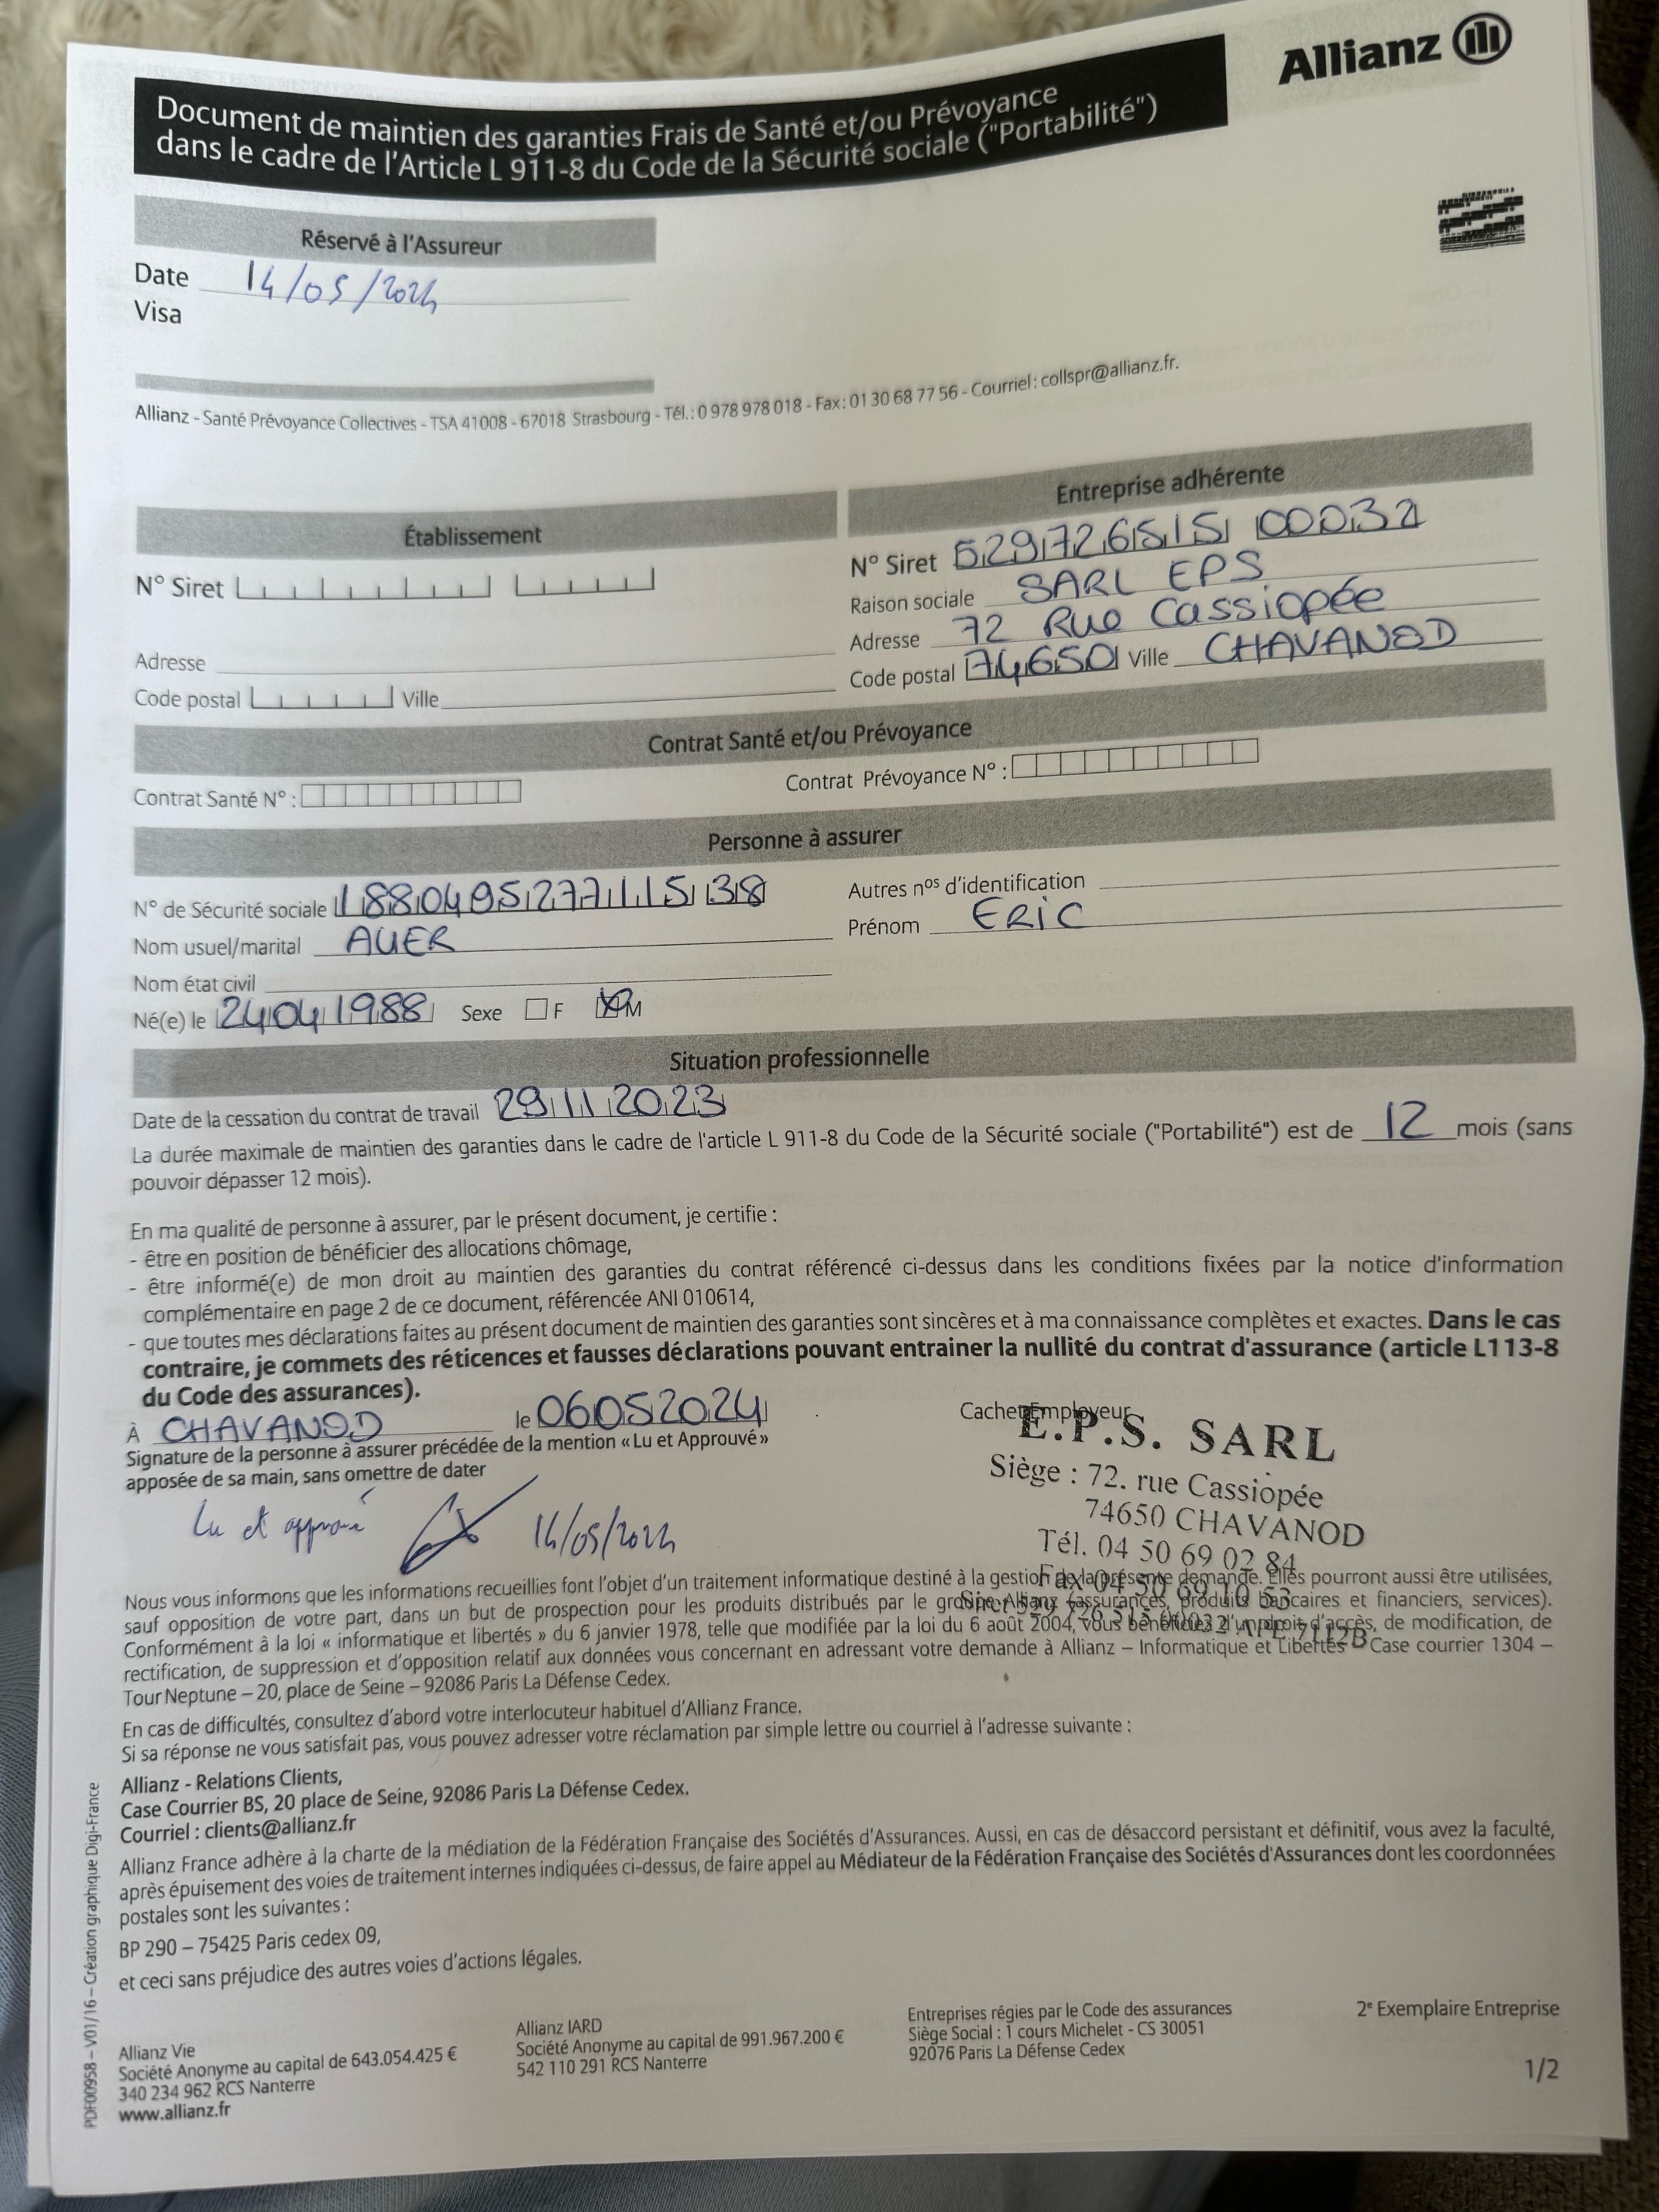 Allianz
Document de maintien des garanties Frais de Santé et/ou Prévoyance
dans le cadre de l'Article L 911-8 du Code de la Sécurité sociale ("Portabilité")
Réservé à l'Assureur
Date 14/05/2024
Visa
Allianz - Santé Prévoyance Collectives - TSA 41008 - 67018 Strasbourg - Tél.: 0 978 978 018 - Fax: 01 30 68 77 56 - Courriel: collspr@allianz.fr.
Établissement
N° Siret
Adresse
Code postal Ville
Entreprise adhérente
N° Siret 529726515 00032
Raison sociale SARL EPS
Adresse 72 Rue Cassiopée
Code postal 74650 Ville CHAVANOD
Contrat Santé et/ou Prévoyance
Contrat Santé N° : Contrat Prévoyance N° :
Personne à assurer
N° de Sécurité sociale 1880495277115 38 Autres nos d'identification
Nom usuel/marital AUER Prénom ERIC
Nom état civil
Né(e) le 24041988 Sexe F M
Situation professionnelle
Date de la cessation du contrat de travail 29112023
La durée maximale de maintien des garanties dans le cadre de l'article L 911-8 du Code de la Sécurité sociale ("Portabilité") est de 12 mois (sans
pouvoir dépasser 12 mois).
En ma qualité de personne à assurer, par le présent document, je certifie :
- être en position de bénéficier des allocations chômage,
- être informé(e) de mon droit au maintien des garanties du contrat référencé ci-dessus dans les conditions fixées par la notice d'information
complémentaire en page 2 de ce document, référencée ANI 010614,
- que toutes mes déclarations faites au présent document de maintien des garanties sont sincères et à ma connaissance complètes et exactes. Dans le cas
contraire, je commets des réticences et fausses déclarations pouvant entrainer la nullité du contrat d'assurance (article L113-8
du Code des assurances).
À CHAVANOD le 06052024
Signature de la personne à assurer précédée de la mention « Lu et Approuvé »
apposée de sa main, sans omettre de dater
Lu et approuvé 14/05/2024
Cachet Employeur
E.P.S. SARL
Siège : 72. rue Cassiopée
74650 CHAVANOD
Tél. 04 50 69 02 84
Fax 04 50 69 10 53
Siret 529 726 515 00032 APE 7112B
Nous vous informons que les informations recueillies font l'objet d'un traitement informatique destiné à la gestion de la présente demande. Elles pourront aussi être utilisées,
sauf opposition de votre part, dans un but de prospection pour les produits distribués par le groupe Allianz (assurances, produits bancaires et financiers, services).
Conformément à la loi « informatique et libertés » du 6 janvier 1978, telle que modifiée par la loi du 6 août 2004, vous bénéficiez d'un droit d'accès, de modification, de
rectification, de suppression et d'opposition relatif aux données vous concernant en adressant votre demande à Allianz – Informatique et Libertés – Case courrier 1304 –
Tour Neptune – 20, place de Seine – 92086 Paris La Défense Cedex.
En cas de difficultés, consultez d'abord votre interlocuteur habituel d'Allianz France.
Si sa réponse ne vous satisfait pas, vous pouvez adresser votre réclamation par simple lettre ou courriel à l'adresse suivante :
Allianz - Relations Clients,
Case Courrier BS, 20 place de Seine, 92086 Paris La Défense Cedex.
Courriel : clients@allianz.fr
Allianz France adhère à la charte de la médiation de la Fédération Française des Sociétés d'Assurances. Aussi, en cas de désaccord persistant et définitif, vous avez la faculté,
après épuisement des voies de traitement internes indiquées ci-dessus, de faire appel au Médiateur de la Fédération Française des Sociétés d'Assurances dont les coordonnées
postales sont les suivantes :
BP 290 – 75425 Paris cedex 09,
et ceci sans préjudice des autres voies d'actions légales.
PDF00958 – V01/16 – Création graphique Digi-France
Allianz Vie
Société Anonyme au capital de 643.054.425 €
340 234 962 RCS Nanterre
www.allianz.fr
Allianz IARD
Société Anonyme au capital de 991.967.200 €
542 110 291 RCS Nanterre
Entreprises régies par le Code des assurances
Siège Social : 1 cours Michelet - CS 30051
92076 Paris La Défense Cedex
2e Exemplaire Entreprise
1/2